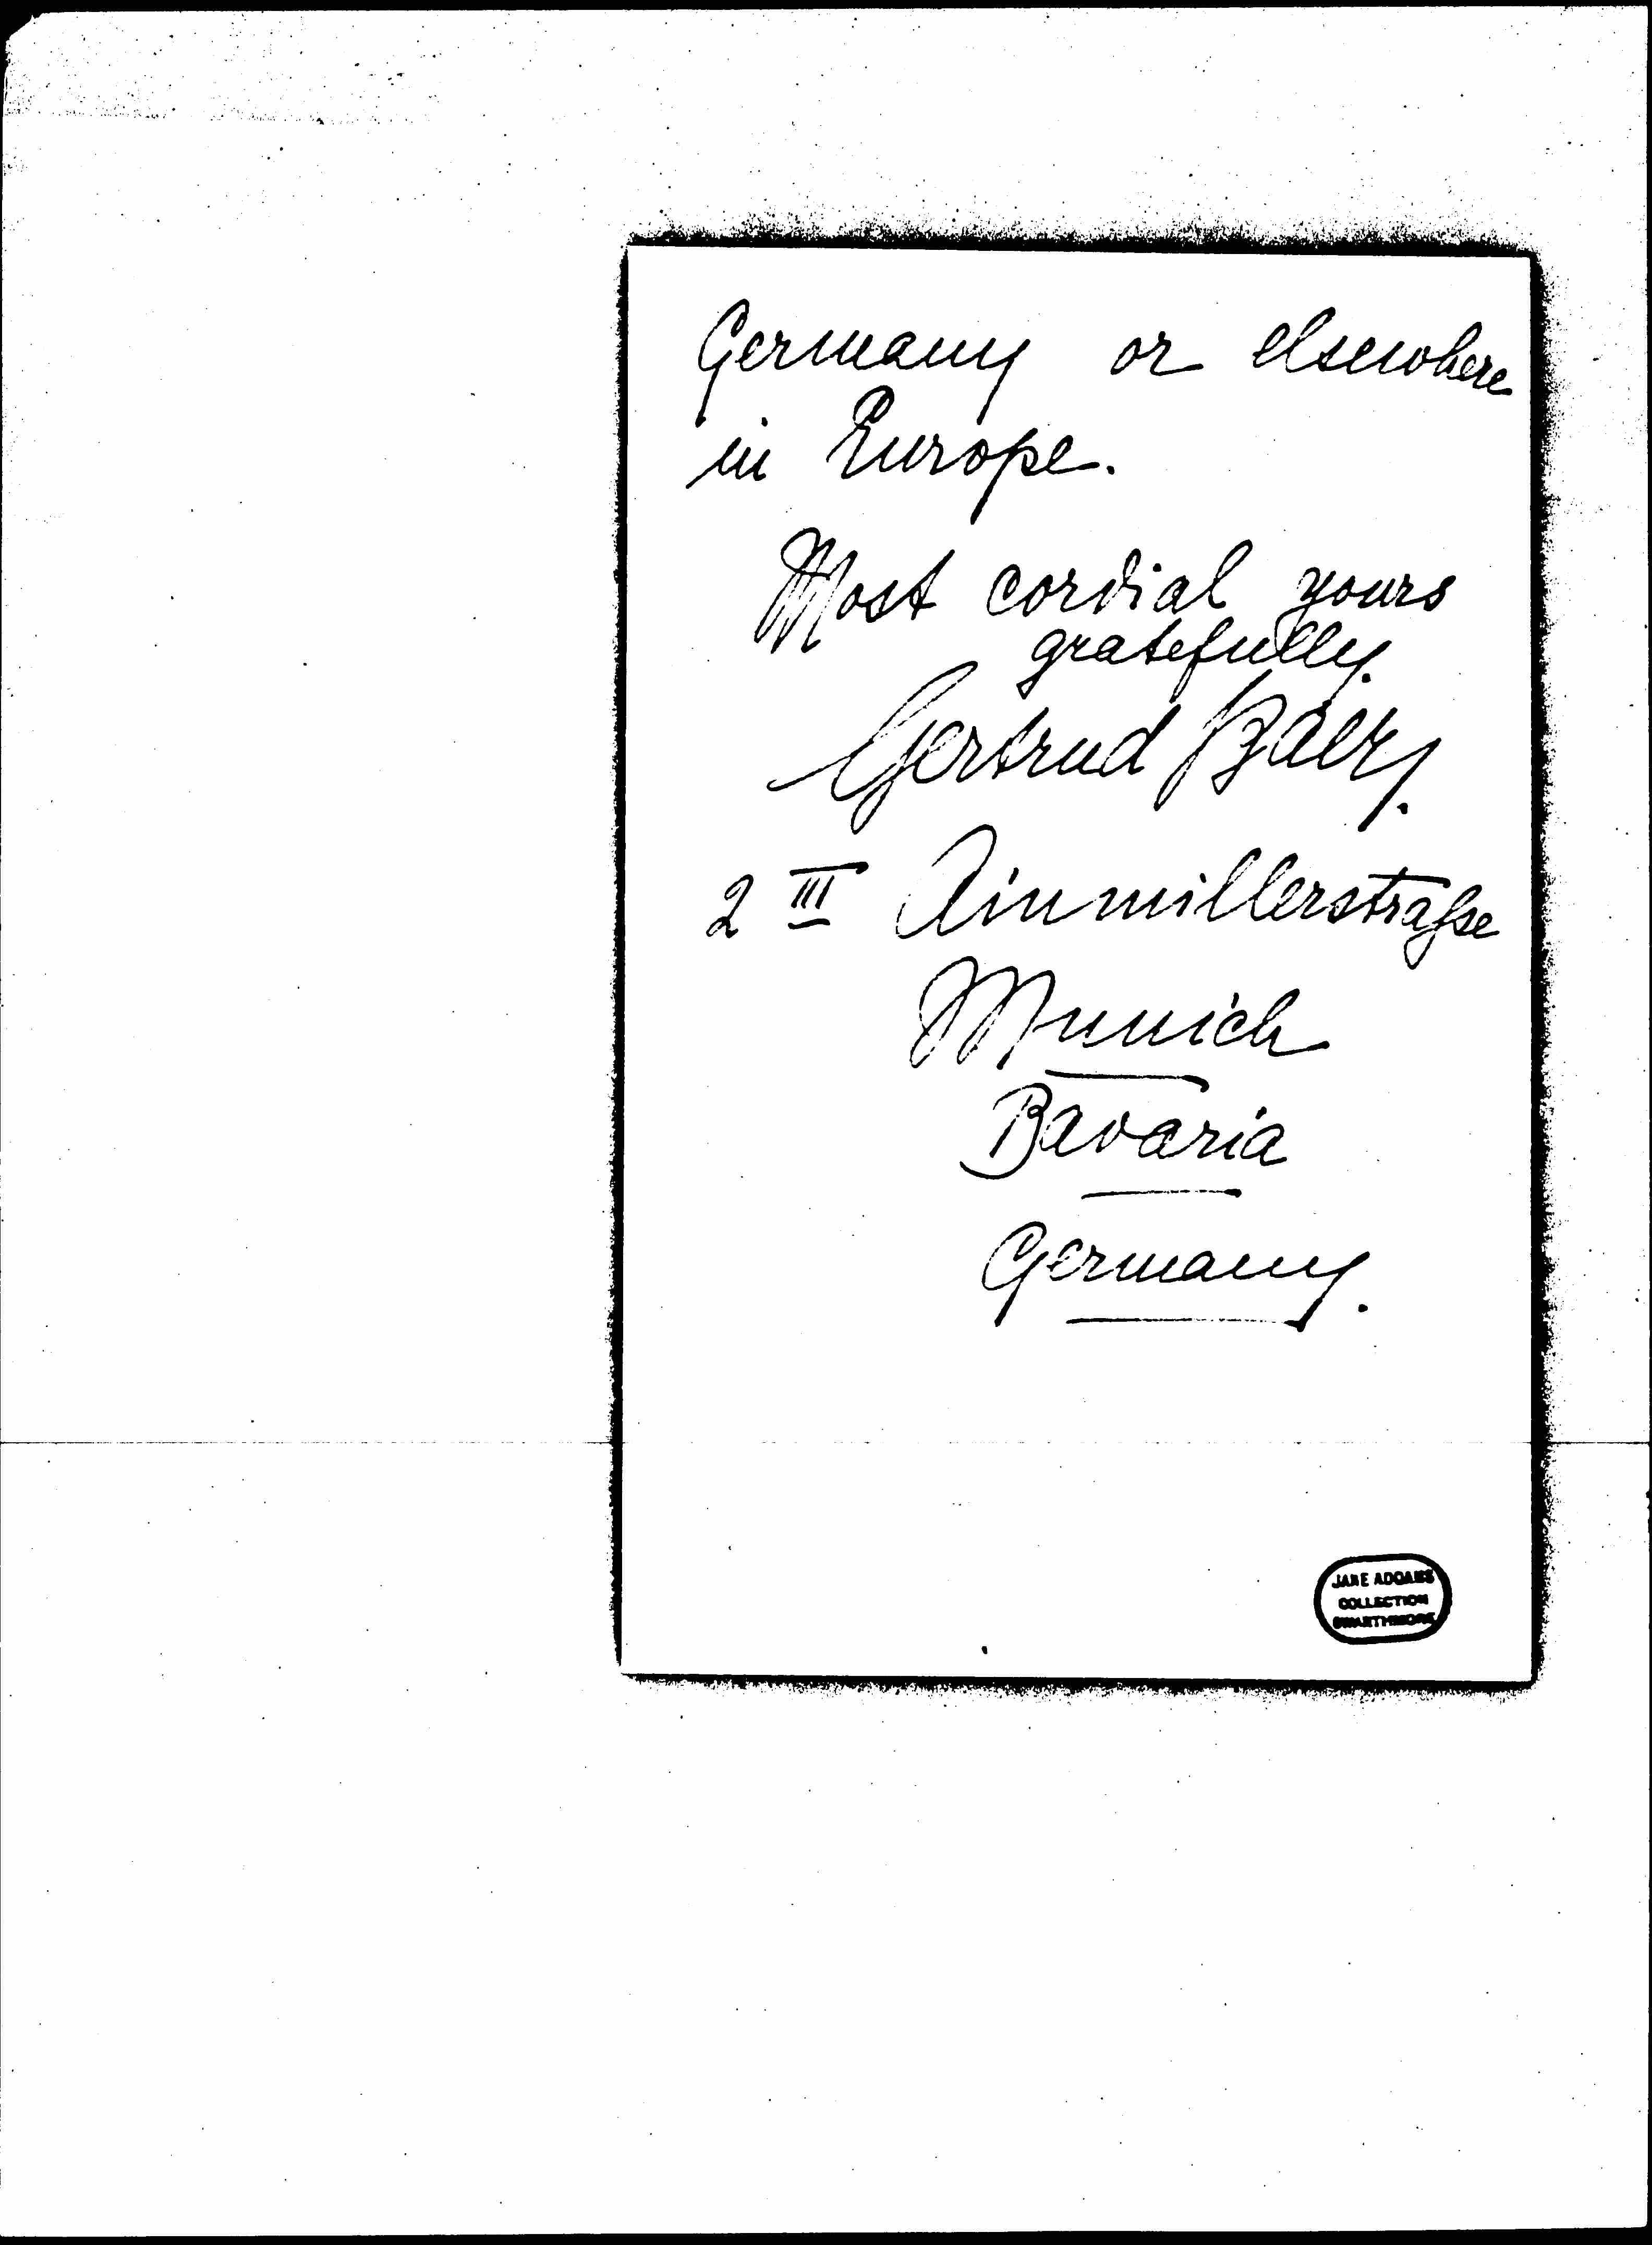 Germany or elsewhere
in Europe.
Most cordial yours
gratefully.
Gertrud Baer.
2 III Ainmillerstraße
Munich
Bavaria
Germany.
JANE ADDAMS
COLLECTION
SWARTHMORE